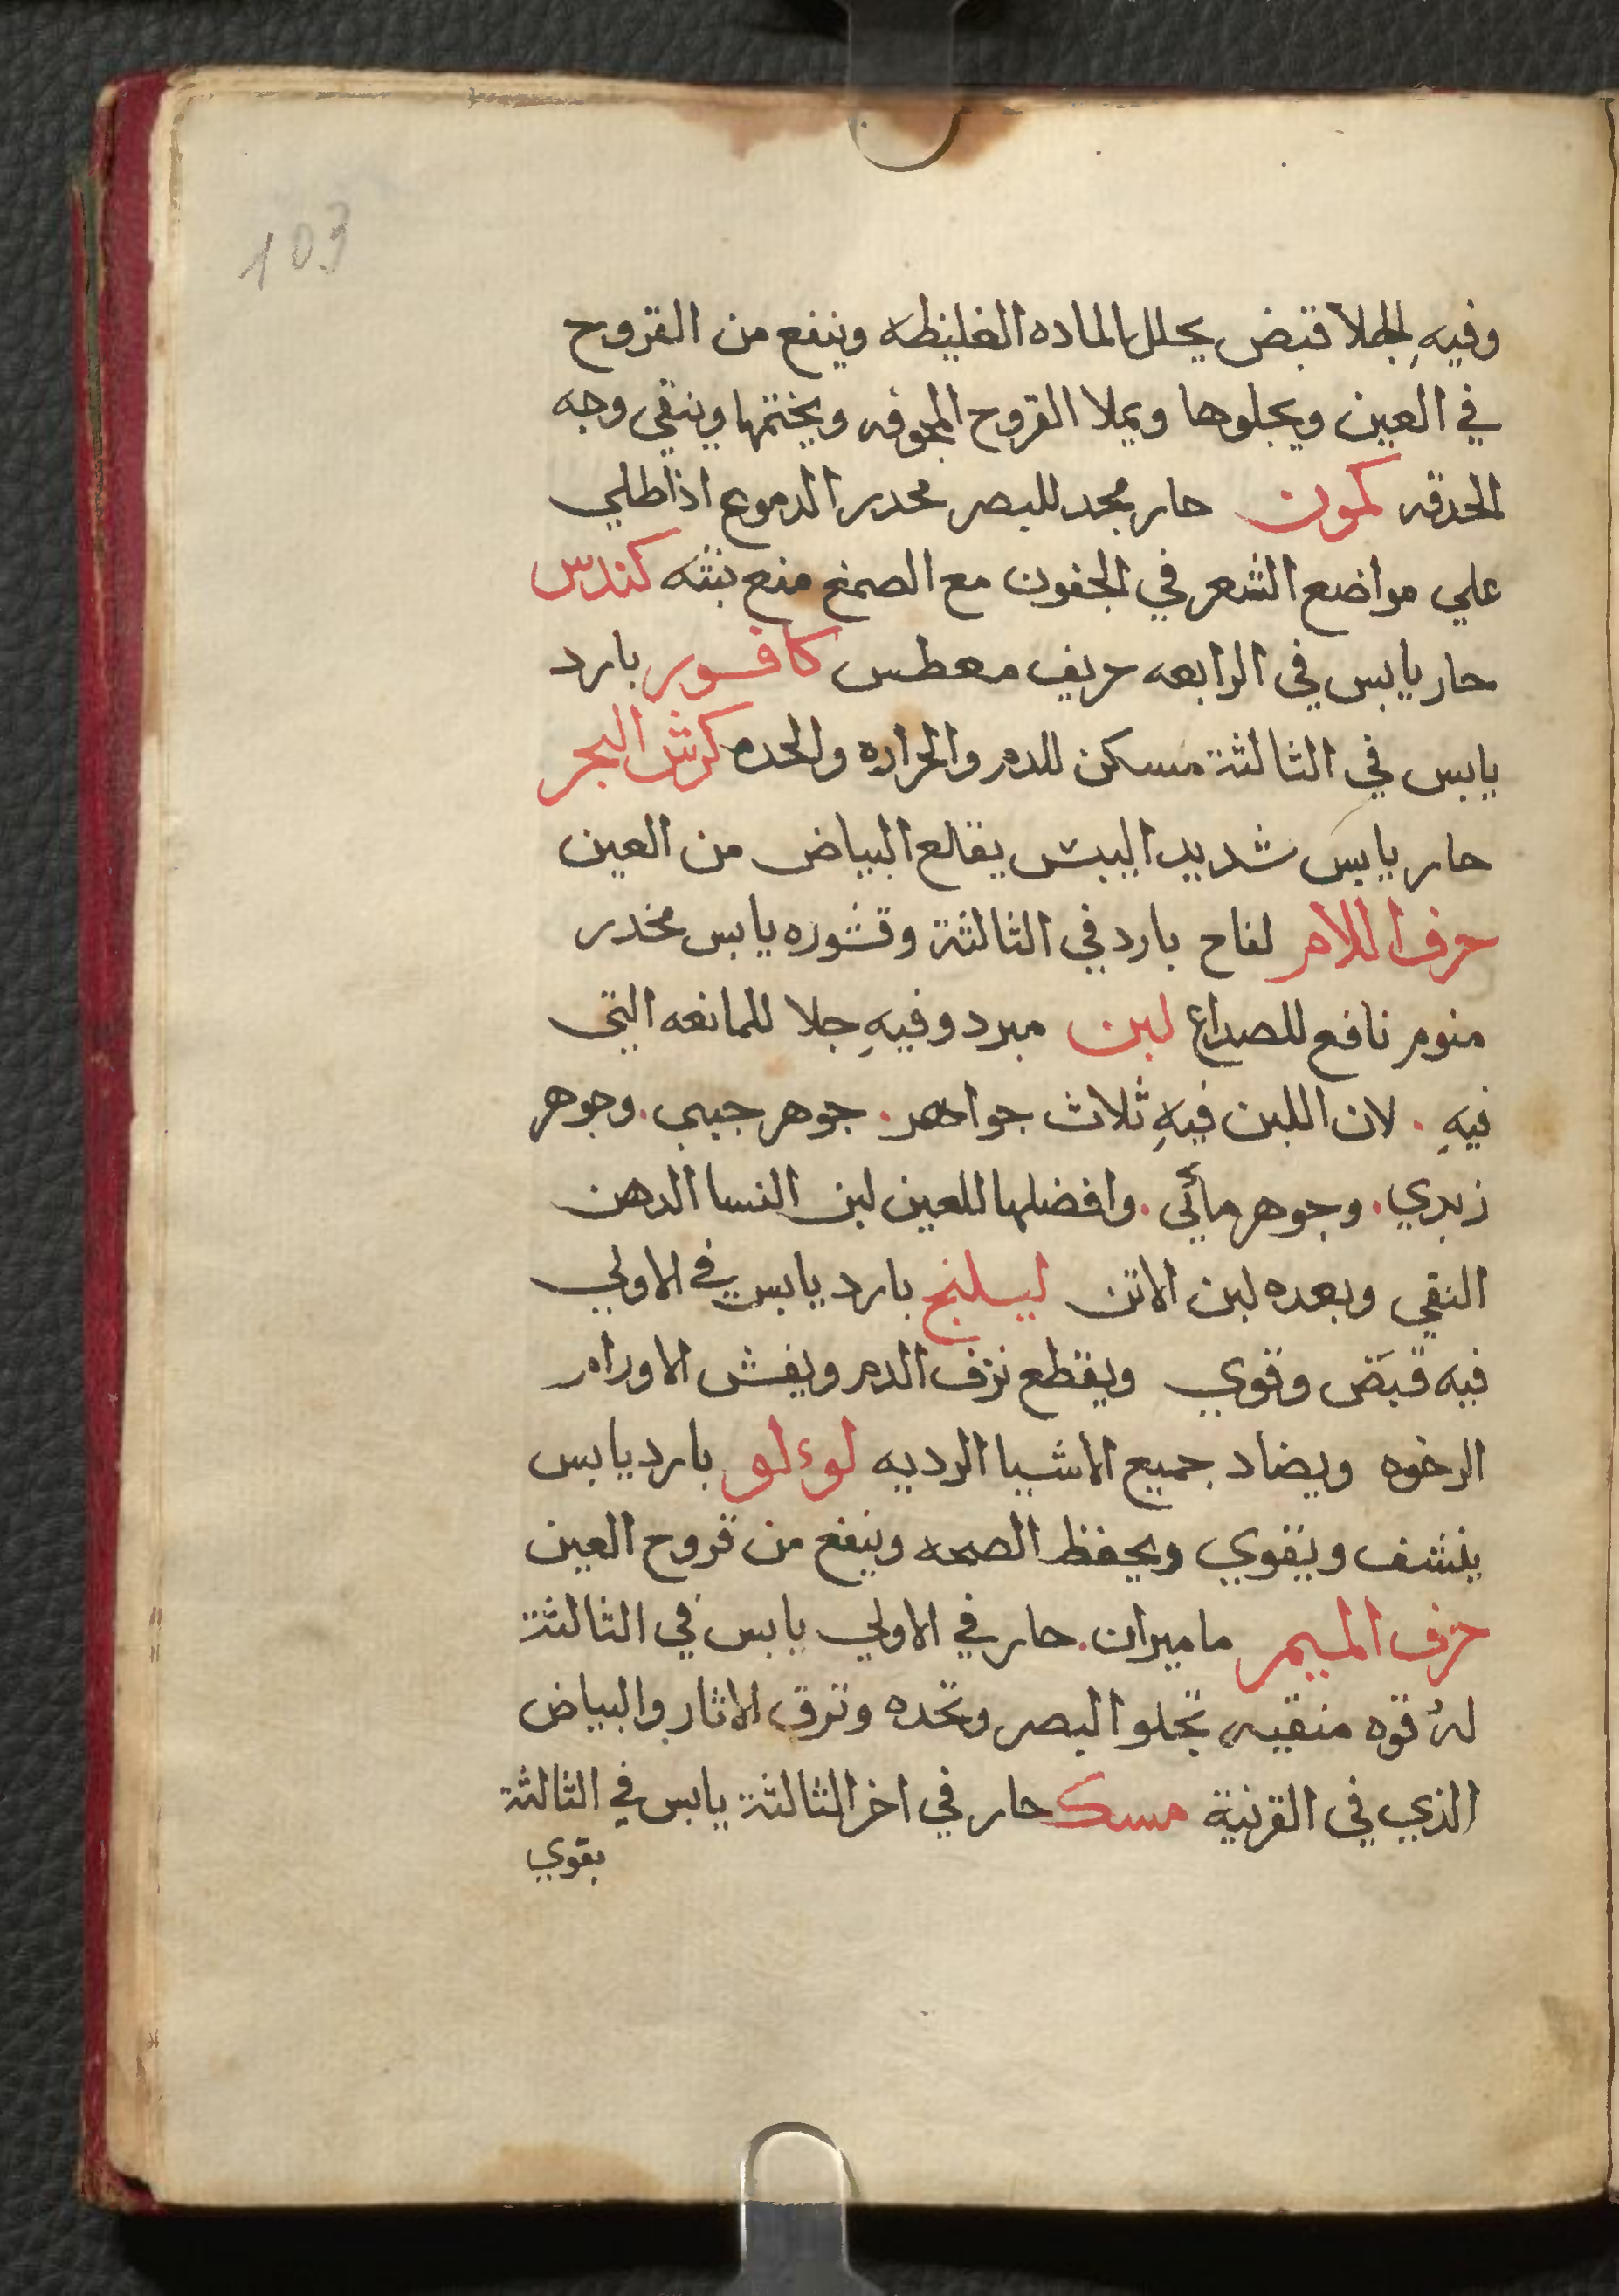 103
وفيهِ لجلا قبض يحلل الماده الغليظه وينفع من القروح
في العين ويجلوها ويملا القروح المجوفه ويختمها وينقي وجه
الحدقه كمون حار مجد للبصر محدر الدموع اذا طلي
علي مواضع الشعر في الجفون مع الصمغ منع نبته كندس
حار يابس في الرابعه حريف معطس كافور بارد
يابس في الثالثة مسكن للدم والحراره والحده كرش البحر
حار يابس شديد اليبس يقلع البياض من العين
حرف اللام لفاح بارد في الثالثة وقشوره يابس مخدر
منوم نافع للصداع لبن مبرد وفيهِ جلا للمانعه التي
فيهِ . لان اللبن فيهِ ثلاث جواهر . جوهر جبني . وجوهر
زبدي . وجوهر مائي . وافضلها للعين لبن النسا الدهن
النقي وبعده لبن الاتن ليسلنج بارد يابس في الاولي
فيه قبض وقوي ويقطع نزف الدم ويفش الاورام
الرخوه ويضاد جميع الاشيا الرديه لوءلو بارد يابس
ينشف ويقوي ويحفظ الصحه وينفع من قروح العين
حرف الميم ماميران . حار في الاولي يابس في الثالثة
لهُ قوه منقيه تجلو البصر وتحده وترق الاثار والبياض
الذي في القرنية مسك حار في اخر الثالثة يابس في الثالثة
بقوي